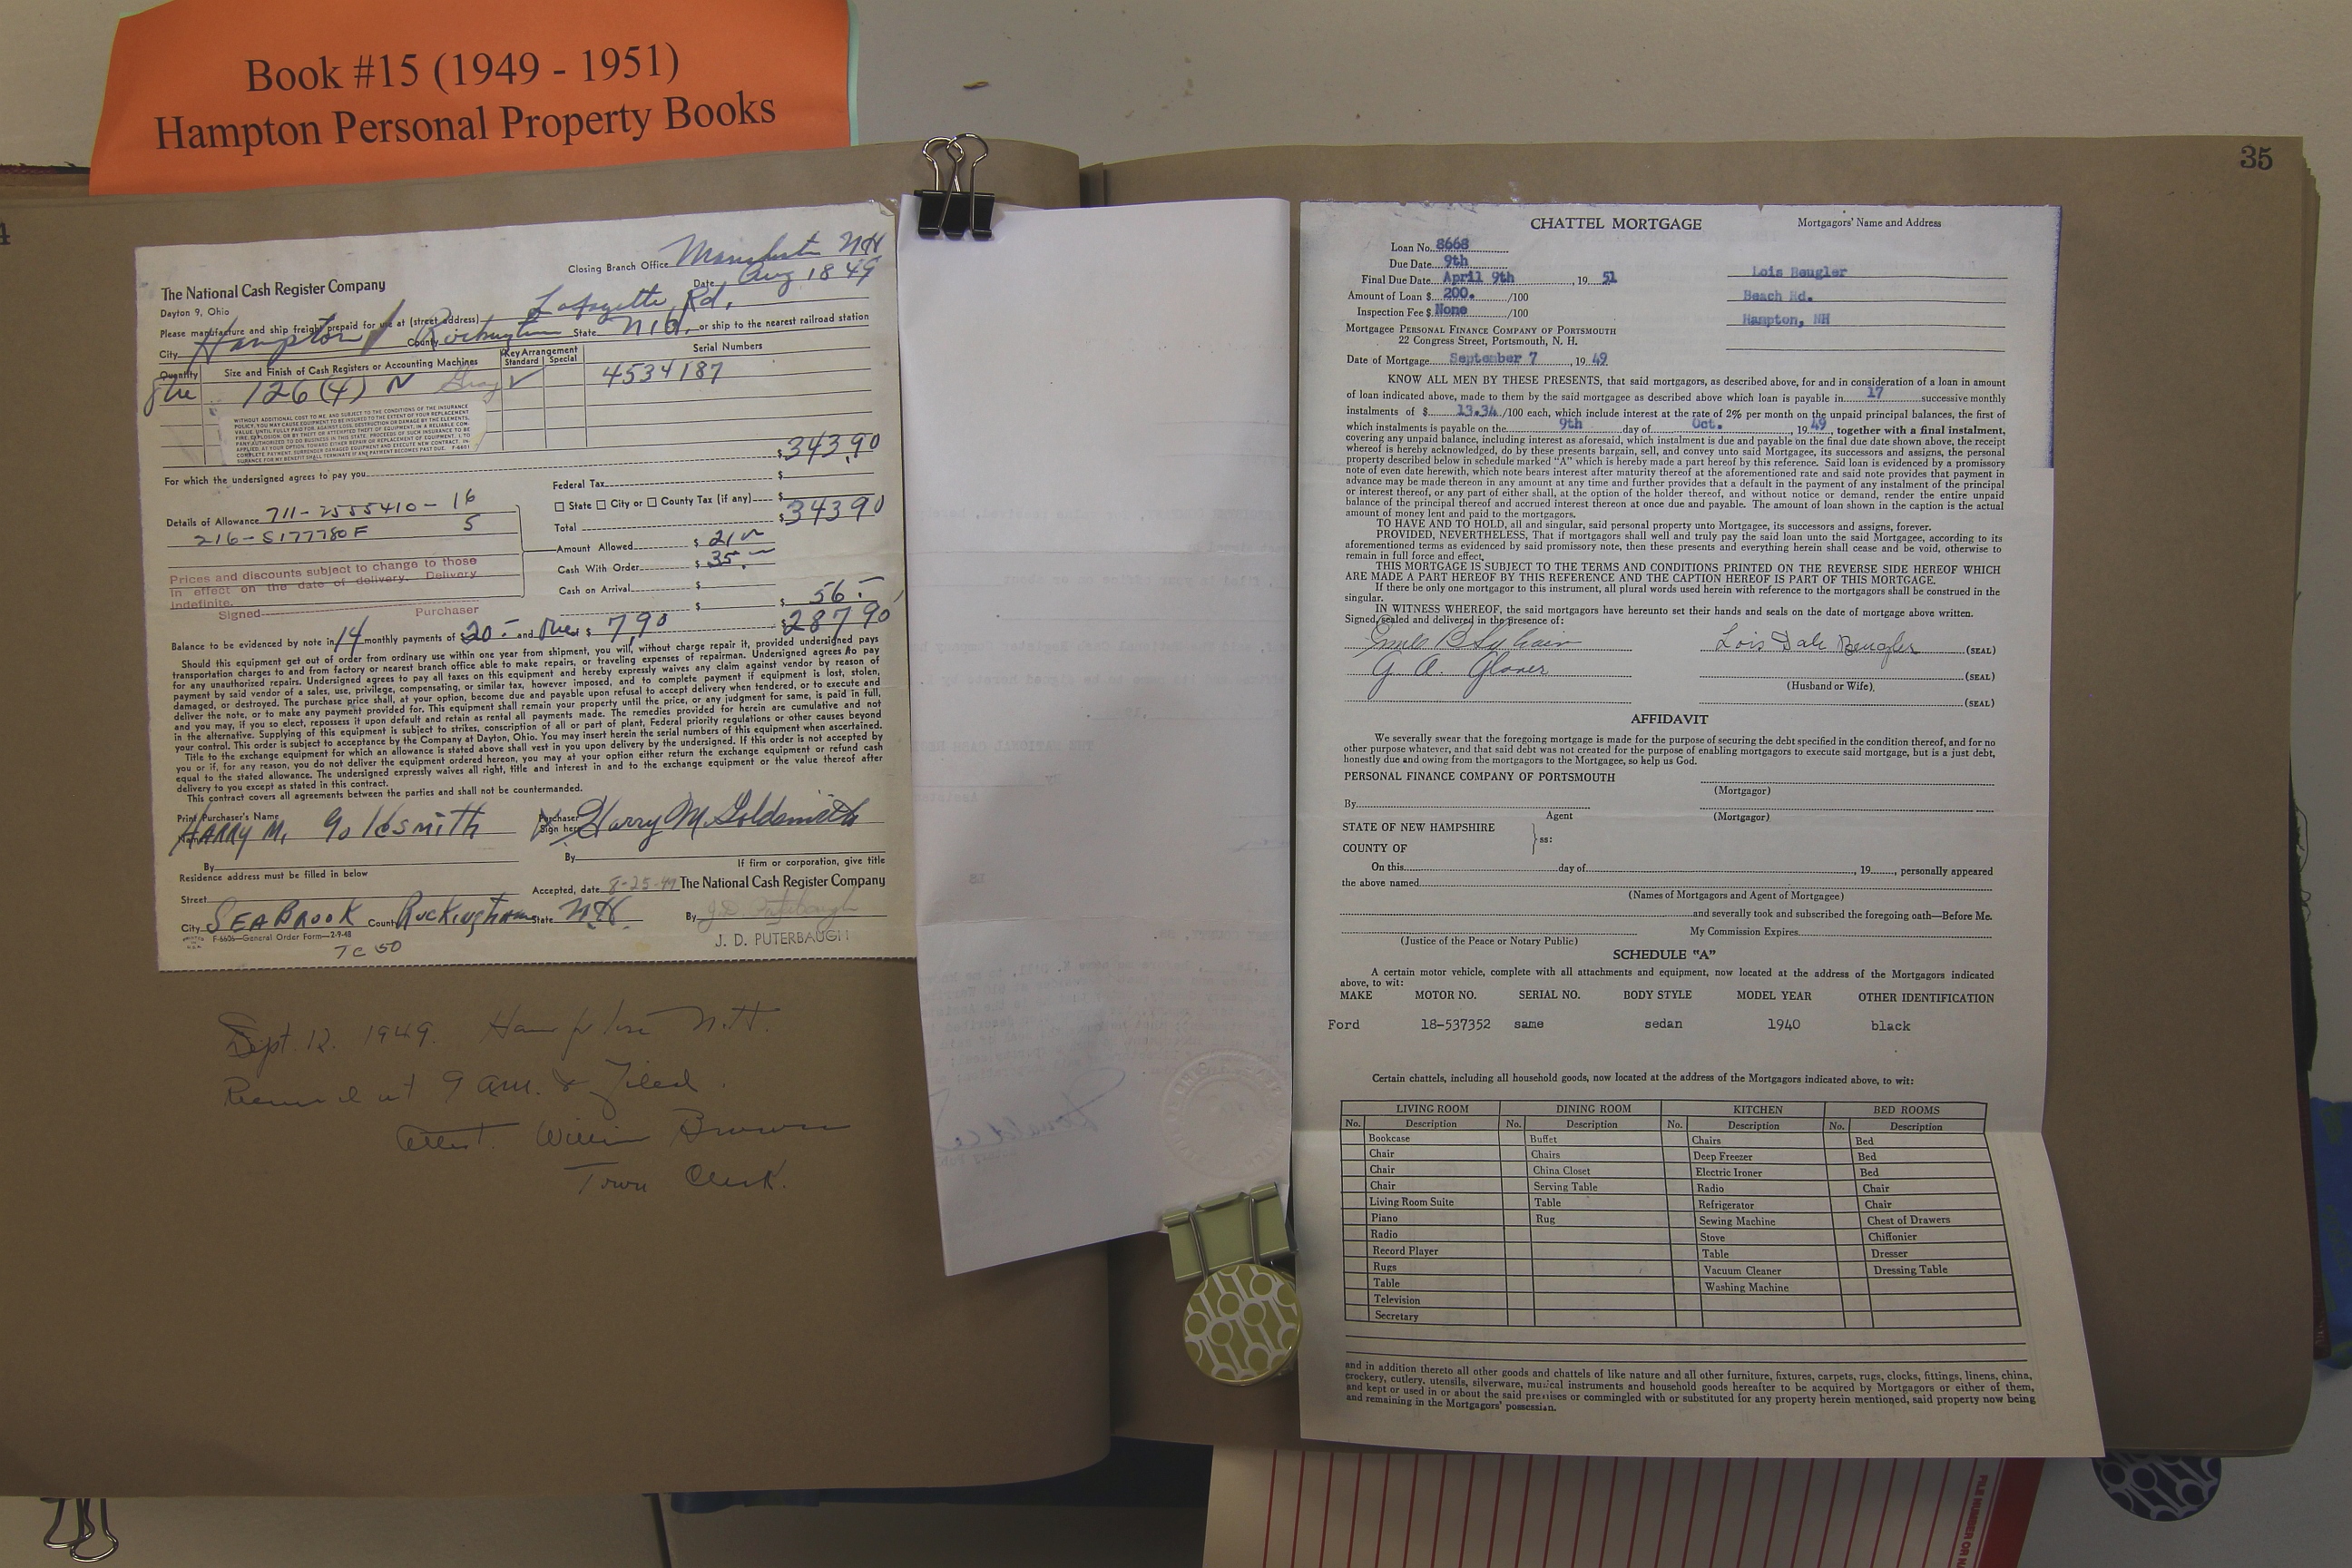 Book #15 (1949 - 1951)
Hampton Personal Property Books
4
The National Cash Register Company
Dayton 9, Ohio
Closing Branch Office Manchester NH
Date Aug 18 49
Please manufacture and ship freight prepaid for use at (street address) Lafayette Rd.
City Hampton County Rockingham State N.H. or ship to the nearest railroad station
Quantity Size and Finish of Cash Registers or Accounting Machines Key Arrangement Standard Special Serial Numbers
One 126(4) N Gray ✓ 4534187
WITHOUT ADDITIONAL COST TO ME AND SUBJECT TO THE CONDITIONS OF THE INSURANCE
POLICY, YOU MAY CAUSE EQUIPMENT TO BE INSURED TO THE EXTENT OF YOUR REPLACEMENT
VALUE, UNTIL FULLY PAID FOR, AGAINST LOSS, DESTRUCTION OR DAMAGE BY THE ELEMENTS,
FIRE, EXPLOSION, OR BY THEFT OR ATTEMPTED THEFT OF EQUIPMENT, IN A RELIABLE COM-
PANY AUTHORIZED TO DO BUSINESS IN THIS STATE. PROCEEDS OF SUCH INSURANCE TO BE
APPLIED, AT YOUR OPTION, TOWARD EITHER REPAIR OR REPLACEMENT OF EQUIPMENT. I, TO
COMPLETE PAYMENT, SURRENDER DAMAGED EQUIPMENT AND EXECUTE NEW CONTRACT. IN-
SURANCE FOR MY BENEFIT SHALL TERMINATE IF ANY PAYMENT BECOMES PAST DUE. F-6601
For which the undersigned agrees to pay you $343.90
Federal Tax $
Details of Allowance 711-2555410-16
216-S177780F 5
State City or County Tax (if any) $
Total $343 90
Amount Allowed $ 21
Cash With Order $ 35
Cash on Arrival $
$ $ 56.-
Prices and discounts subject to change to those
in effect on the date of delivery. Delivery
indefinite.
Signed Purchaser
Balance to be evidenced by note in 14 monthly payments of $20.- and One of $ 7 90 $287 90
Should this equipment get out of order from ordinary use within one year from shipment, you will, without charge repair it, provided undersigned pays
transportation charges to and from factory or nearest branch office able to make repairs, or traveling expenses of repairman. Undersigned agrees to pay
for any unauthorized repairs. Undersigned agrees to pay all taxes on this equipment and hereby expressly waives any claim against vendor by reason of
payment by said vendor of a sales, use, privilege, compensating, or similar tax, however imposed, and to complete payment if equipment is lost, stolen,
damaged, or destroyed. The purchase price shall, at your option, become due and payable upon refusal to accept delivery when tendered, or to execute and
deliver the note, or to make any payment provided for. This equipment shall remain your property until the price, or any judgment for same, is paid in full,
and you may, if you so elect, repossess it upon default and retain as rental all payments made. The remedies provided for herein are cumulative and not
in the alternative. Supplying of this equipment is subject to strikes, conscription of all or part of plant, Federal priority regulations or other causes beyond
your control. This order is subject to acceptance by the Company at Dayton, Ohio. You may insert herein the serial numbers of this equipment when ascertained.
Title to the exchange equipment for which an allowance is stated above shall vest in you upon delivery by the undersigned. If this order is not accepted by
you or if, for any reason, you do not deliver the equipment ordered hereon, you may at your option either return the exchange equipment or refund cash
equal to the stated allowance. The undersigned expressly waives all right, title and interest in and to the exchange equipment or the value thereof after
delivery to you except as stated in this contract.
This contract covers all agreements between the parties and shall not be countermanded.
Print Purchaser's Name HARRY M. Goldsmith
Purchaser Sign here Harry M. Goldsmith
By By If firm or corporation, give title
Residence address must be filled in below
Accepted, date 8-25-49 The National Cash Register Company
Street
City SEABROOK County Rockingham State N.H. By J.D. Puterbaugh
F-6606—General Order Form—2-9-48
J. D. PUTERBAUGH
TC 50
Sept. 12. 1949. Hampton N.H.
Received at 9 am. & Filed.
Attest. William Brown
Town Clerk.
35
CHATTEL MORTGAGE
Mortgagors' Name and Address
Loan No. 8668
Due Date 9th
Final Due Date April 9th, 19 51
Amount of Loan $ 200. /100
Inspection Fee $ None /100
Lois Beugler
Beach Rd.
Hampton, NH
Mortgagee PERSONAL FINANCE COMPANY OF PORTSMOUTH
22 Congress Street, Portsmouth, N. H.
Date of Mortgage September 7 19 49
KNOW ALL MEN BY THESE PRESENTS, that said mortgagors, as described above, for and in consideration of a loan in amount
of loan indicated above, made to them by the said mortgagee as described above which loan is payable in 17 successive monthly
instalments of $ 13.34 /100 each, which include interest at the rate of 2% per month on the unpaid principal balances, the first of
which instalments is payable on the 9th day of Oct. , 19 49, together with a final instalment,
covering any unpaid balance, including interest as aforesaid, which instalment is due and payable on the final due date shown above, the receipt
whereof is hereby acknowledged, do by these presents bargain, sell, and convey unto said Mortgagee, its successors and assigns, the personal
property described below in schedule marked "A" which is hereby made a part hereof by this reference. Said loan is evidenced by a promissory
note of even date herewith, which note bears interest after maturity thereof at the aforementioned rate and said note provides that payment in
advance may be made thereon in any amount at any time and further provides that a default in the payment of any instalment of the principal
or interest thereof, or any part of either shall, at the option of the holder thereof, and without notice or demand, render the entire unpaid
balance of the principal thereof and accrued interest thereon at once due and payable. The amount of loan shown in the caption is the actual
amount of money lent and paid to the mortgagors.
TO HAVE AND TO HOLD, all and singular, said personal property unto Mortgagee, its successors and assigns, forever.
PROVIDED, NEVERTHELESS, That if mortgagors shall well and truly pay the said loan unto the said Mortgagee, according to its
aforementioned terms as evidenced by said promissory note, then these presents and everything herein shall cease and be void, otherwise to
remain in full force and effect.
THIS MORTGAGE IS SUBJECT TO THE TERMS AND CONDITIONS PRINTED ON THE REVERSE SIDE HEREOF WHICH
ARE MADE A PART HEREOF BY THIS REFERENCE AND THE CAPTION HEREOF IS PART OF THIS MORTGAGE.
If there be only one mortgagor to this instrument, all plural words used herein with reference to the mortgagors shall be construed in the
singular.
IN WITNESS WHEREOF, the said mortgagors have hereunto set their hands and seals on the date of mortgage above written.
Signed, sealed and delivered in the presence of:
Lois Dale Beugler (SEAL)
G. A. Glover (SEAL)
(Husband or Wife)
(SEAL)
AFFIDAVIT
We severally swear that the foregoing mortgage is made for the purpose of securing the debt specified in the condition thereof, and for no
other purpose whatever, and that said debt was not created for the purpose of enabling mortgagors to execute said mortgage, but is a just debt,
honestly due and owing from the mortgagors to the Mortgagee, so help us God.
PERSONAL FINANCE COMPANY OF PORTSMOUTH
(Mortgagor)
By
Agent (Mortgagor)
STATE OF NEW HAMPSHIRE
ss:
COUNTY OF
On this day of , 19 , personally appeared
the above named
(Names of Mortgagors and Agent of Mortgagee)
and severally took and subscribed the foregoing oath—Before Me.
My Commission Expires
(Justice of the Peace or Notary Public)
SCHEDULE "A"
A certain motor vehicle, complete with all attachments and equipment, now located at the address of the Mortgagors indicated
above, to wit:
MAKE MOTOR NO. SERIAL NO. BODY STYLE MODEL YEAR OTHER IDENTIFICATION
Ford 18-537352 same sedan 1940 black
Certain chattels, including all household goods, now located at the address of the Mortgagors indicated above, to wit:
LIVING ROOM DINING ROOM KITCHEN BED ROOMS
No. Description No. Description No. Description No. Description
Bookcase Buffet Chairs Bed
Chair Chairs Deep Freezer Bed
Chair China Closet Electric Ironer Bed
Chair Serving Table Radio Chair
Living Room Suite Table Refrigerator Chair
Piano Rug Sewing Machine Chest of Drawers
Radio Stove Chiffonier
Record Player Table Dresser
Rugs Vacuum Cleaner Dressing Table
Table Washing Machine
Television
Secretary
and in addition thereto all other goods and chattels of like nature and all other furniture, fixtures, carpets, rugs, clocks, fittings, linens, china,
crockery, cutlery, utensils, silverware, musical instruments and household goods hereafter to be acquired by Mortgagors or either of them,
and kept or used in or about the said premises or commingled with or substituted for any property herein mentioned, said property now being
and remaining in the Mortgagors' possession.
FILE NUMBER OR